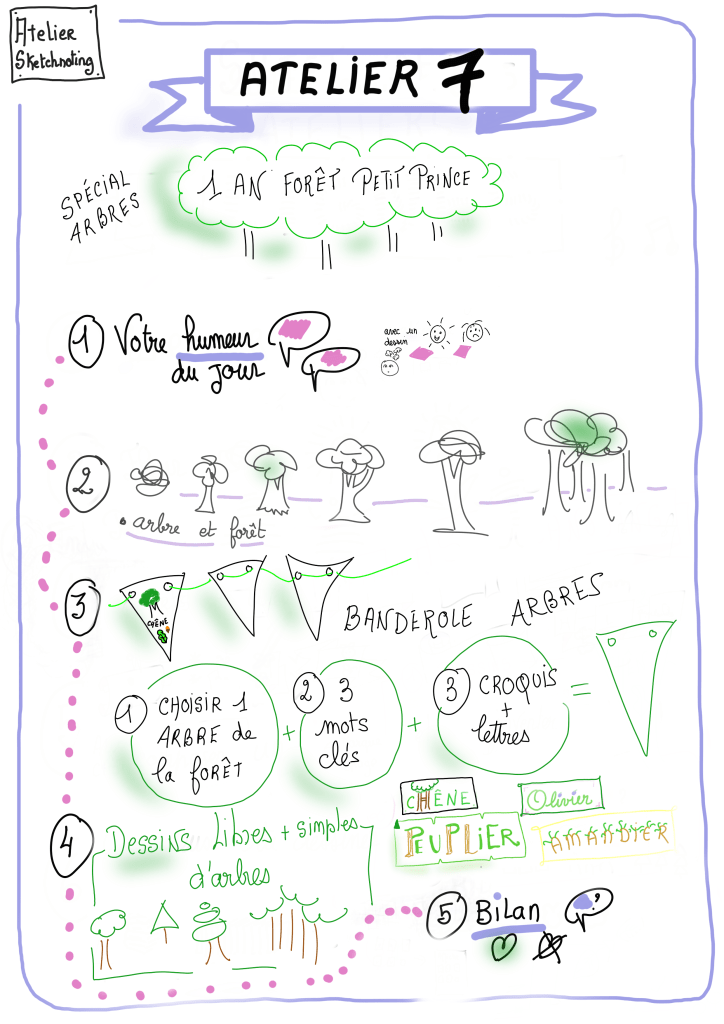 Atelier
Sketchnoting
ATELIER 7
SPÉCIAL
ARBRES
1 AN FORÊT PETIT PRINCE
1 Votre humeur
du jour
avec un
dessin
2
• arbre et forêt
3
CHÊNE
BANDEROLE ARBRES
1 CHOISIR 1
ARBRE de
la forÊT
+
2 3
mots
clés
+
3 CROQUIS
+
lettres
=
CHÊNE
Olivier
PEUPLIER
AMANDIER
4 Dessins libres + simples
d'arbres
5 Bilan